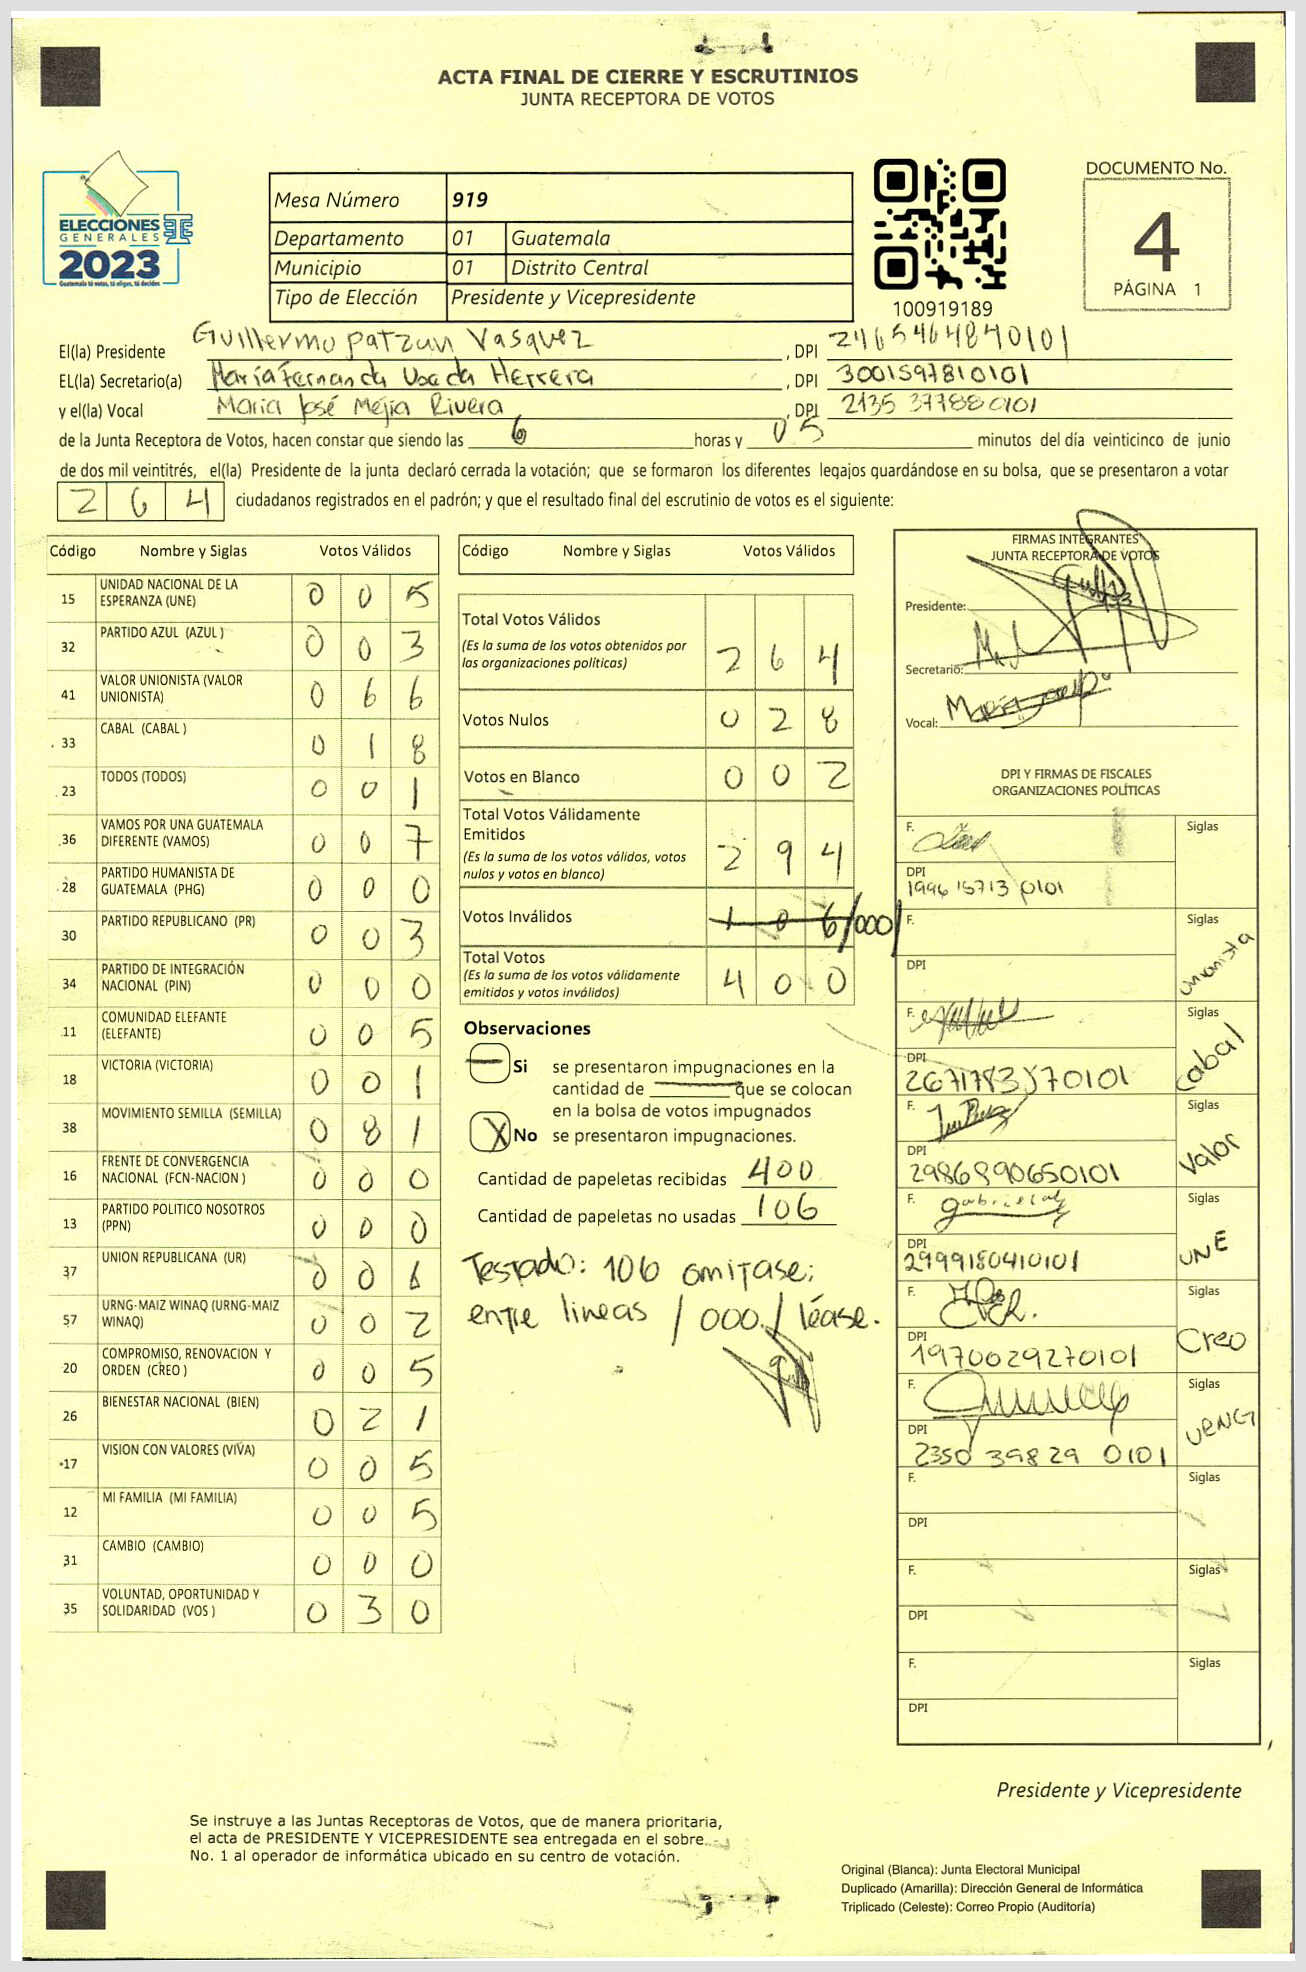 ACTA FINAL DE CIERRE Y ESCRUTINIOS
JUNTA RECEPTORA DE VOTOS
ELECCIONES
GENERALES
2023
Guatemala tú votas, tú eliges, tú decides
Mesa Número 919
Departamento 01 Guatemala
Municipio 01 Distrito Central
Tipo de Elección Presidente y Vicepresidente
100919189
DOCUMENTO No.
4
PÁGINA 1
El(la) Presidente Guillermo Patzun Vasquez, DPI 2465464840101
EL(la) Secretario(a) María Fernanda Herrera, DPI 3001597810101
y el(la) Vocal Maria José Mejía Rivera, DPI 2135 377880101
de la Junta Receptora de Votos, hacen constar que siendo las 6 horas y 05 minutos del día veinticinco de junio
de dos mil veintitrés, el(la) Presidente de la junta declaró cerrada la votación; que se formaron los diferentes legajos guardándose en su bolsa, que se presentaron a votar
264 ciudadanos registrados en el padrón; y que el resultado final del escrutinio de votos es el siguiente:
Código Nombre y Siglas Votos Válidos
15 UNIDAD NACIONAL DE LA ESPERANZA (UNE) 0 0 5
32 PARTIDO AZUL (AZUL ) 0 0 3
41 VALOR UNIONISTA (VALOR UNIONISTA) 0 6 6
33 CABAL (CABAL ) 0 1 8
23 TODOS (TODOS) 0 0 1
36 VAMOS POR UNA GUATEMALA DIFERENTE (VAMOS) 0 0 7
28 PARTIDO HUMANISTA DE GUATEMALA (PHG) 0 0 0
30 PARTIDO REPUBLICANO (PR) 0 0 3
34 PARTIDO DE INTEGRACIÓN NACIONAL (PIN) 0 0 0
11 COMUNIDAD ELEFANTE (ELEFANTE) 0 0 5
18 VICTORIA (VICTORIA) 0 0 1
38 MOVIMIENTO SEMILLA (SEMILLA) 0 8 1
16 FRENTE DE CONVERGENCIA NACIONAL (FCN-NACION ) 0 0 0
13 PARTIDO POLITICO NOSOTROS (PPN) 0 0 0
37 UNION REPUBLICANA (UR) 0 0 6
57 URNG-MAIZ WINAQ (URNG-MAIZ WINAQ) 0 0 2
20 COMPROMISO, RENOVACION Y ORDEN (CREO ) 0 0 5
26 BIENESTAR NACIONAL (BIEN) 0 2 1
17 VISION CON VALORES (VIVA) 0 0 5
12 MI FAMILIA (MI FAMILIA) 0 0 5
31 CAMBIO (CAMBIO) 0 0 0
35 VOLUNTAD, OPORTUNIDAD Y SOLIDARIDAD (VOS ) 0 3 0
Código Nombre y Siglas Votos Válidos
Total Votos Válidos 2 6 4
(Es la suma de los votos obtenidos por
las organizaciones políticas)
Votos Nulos 0 2 8
Votos en Blanco 0 0 2
Total Votos Válidamente
Emitidos 2 9 4
(Es la suma de los votos válidos, votos
nulos y votos en blanco)
Votos Inválidos 1 0 6 /000/
Total Votos 4 0 0
(Es la suma de los votos válidamente
emitidos y votos inválidos)
Observaciones
Si se presentaron impugnaciones en la
cantidad de que se colocan
en la bolsa de votos impugnados
X No se presentaron impugnaciones.
Cantidad de papeletas recibidas 400
Cantidad de papeletas no usadas 106
Testado: 106 omitase;
entre lineas /000./ léase.
FIRMAS INTEGRANTES
JUNTA RECEPTORA DE VOTOS
Presidente:
Secretario:
Vocal:
DPI Y FIRMAS DE FISCALES
ORGANIZACIONES POLÍTICAS
F. Siglas
DPI
1996 15713 0101
F. Siglas
DPI unionista
F. Siglas
DPI Cabal
2671783570101
F. Siglas
DPI Valor
2986890650101
F. Siglas
DPI UNE
2999180410101
F. Siglas
DPI Creo
1970029270101
F. Siglas
DPI URNG
2350 39829 0101
F. Siglas
DPI
F. Siglas
DPI
F. Siglas
DPI
Presidente y Vicepresidente
Se instruye a las Juntas Receptoras de Votos, que de manera prioritaria,
el acta de PRESIDENTE Y VICEPRESIDENTE sea entregada en el sobre
No. 1 al operador de informática ubicado en su centro de votación.
Original (Blanca): Junta Electoral Municipal
Duplicado (Amarilla): Dirección General de Informática
Triplicado (Celeste): Correo Propio (Auditoría)